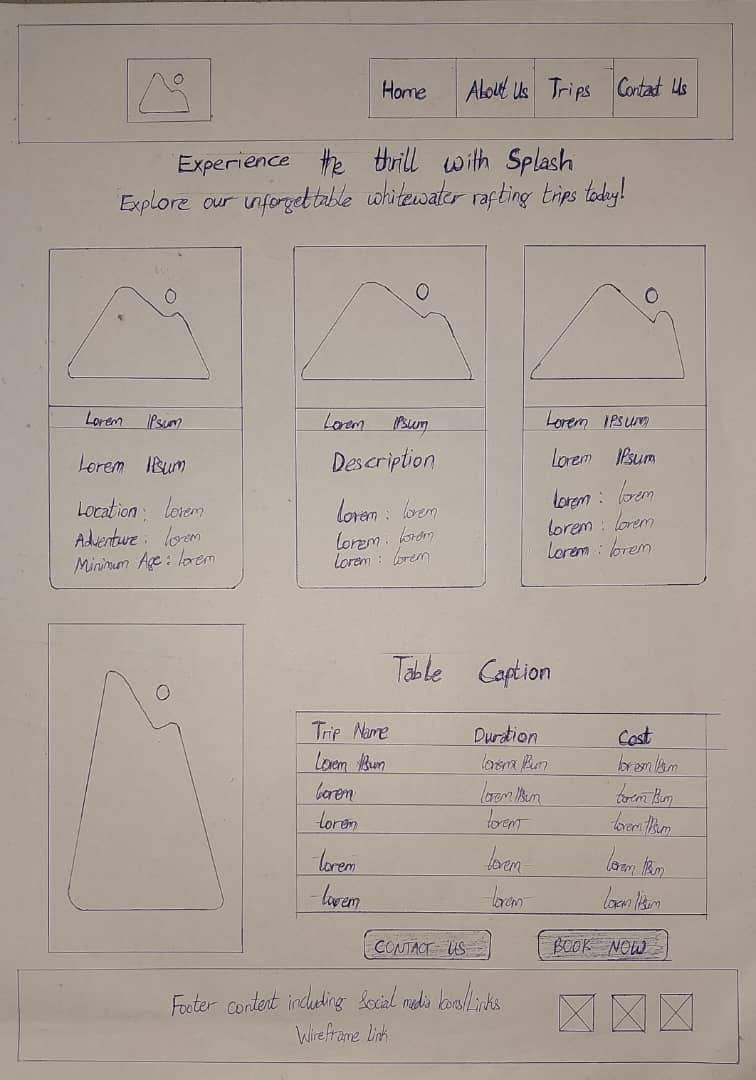 Home About Us Trips Contact Us
Experience the thrill with Splash
Explore our unforgettable whitewater rafting trips today!
Lorem IPsum
Lorem IPsum
Location : lorem
Adventure : lorem
Minimum Age : lorem
Lorem IPsum
Description
Lorem : lorem
Lorem : lorem
Lorem : lorem
Lorem IPsum
Lorem IPsum
Lorem : lorem
Lorem : lorem
Lorem : lorem
Table Caption
Trip Name Duration Cost
Lorem IPsum lorem IPsum lorem IPsum
Lorem lorem IPsum lorem IPsum
Lorem lorem lorem IPsum
Lorem lorem lorem IPsum
Lorem lorem lorem IPsum
CONTACT US BOOK NOW
Footer content including Social media Icons/Links
Wireframe link